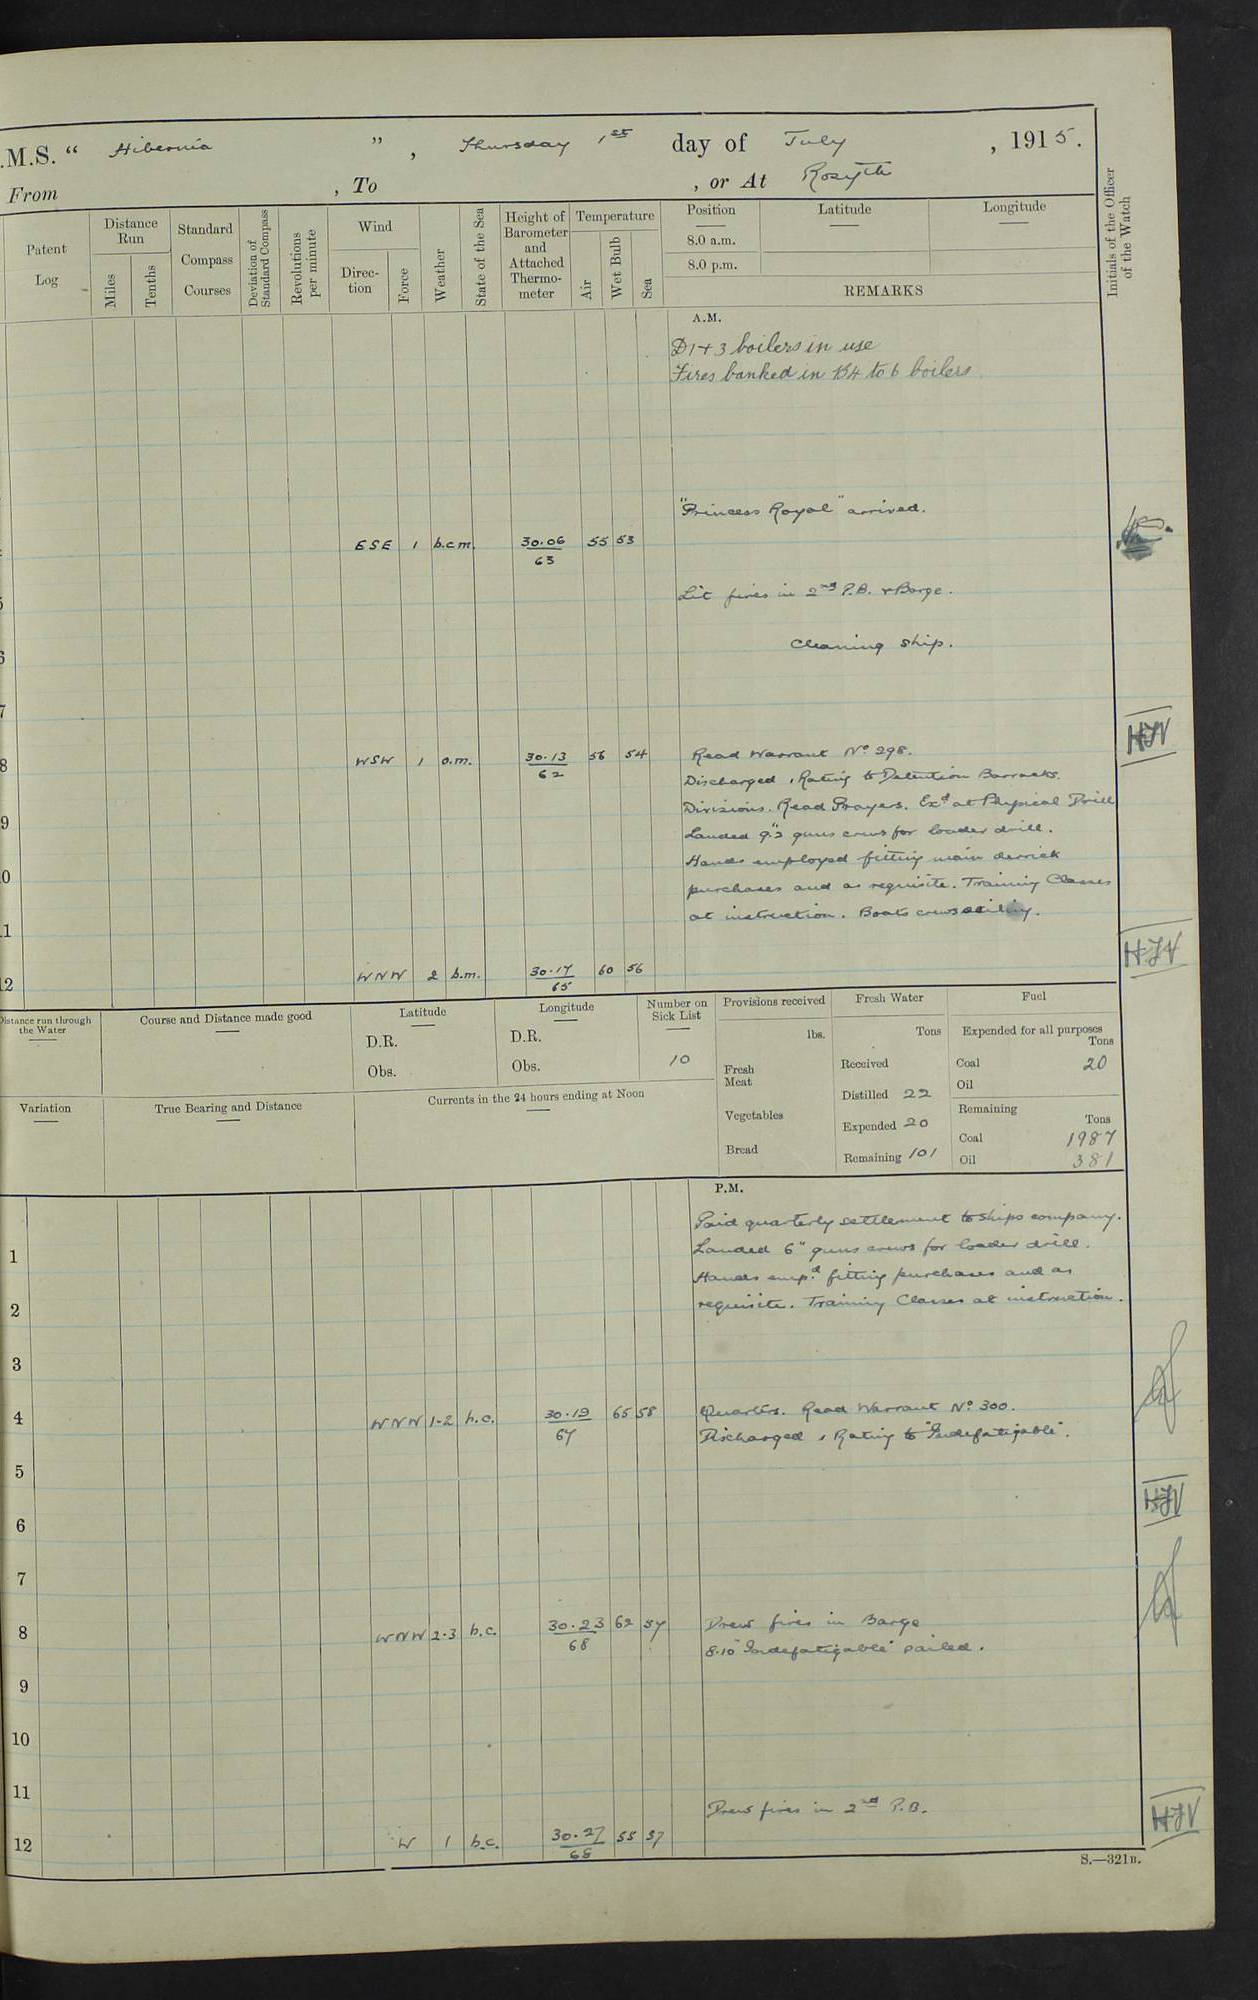 .M.S. “ Hibernia ” , Thursday 1st day of July , 1915.
From , To , or At Rosyth
Patent Log
Distance Run
Miles
Tenths
Standard Compass Courses
Deviation of Standard Compass
Revolutions per minute
Wind
Direction
Force
Weather
State of the Sea
Height of Barometer and Attached Thermometer
Temperature
Air
Wet Bulb
Sea
Position
8.0 a.m.
8.0 p.m.
Latitude
Longitude
REMARKS
Initials of the Officer of the Watch
A.M.
D1+3 boilers in use
Fires banked in B4 to 6 boilers
"Princess Royal" arrived.
ESE 1 b.c.m. 30.06 55 53
63
5 Lit fires in 2nd P.B. & Barge.
6 Cleaning ship.
7
8 WSW 1 o.m. 30.13 56 54 Read Warrant No 298.
62
Discharged 1 Rating to Detention Barracks.
Divisions. Read Prayers. Exd at Physical Drill
9 Landed 9.2 guns crews for loader drill.
Hands employed fitting main derrick
10 purchases and as requisite. Training Classes
at instruction. Boats crews sailing.
11
HJV
12 WNW 2 b.m. 30.17 60 56
65
Distance run through the Water
Course and Distance made good
Latitude
D.R.
Obs.
Longitude
D.R.
Obs.
Number on Sick List
10
Provisions received
lbs.
Fresh Meat
Vegetables
Bread
Fresh Water
Tons
Received
Distilled 22
Expended 20
Remaining 101
Fuel
Expended for all purposes
Tons
Coal 20
Oil
Remaining
Tons
Coal 1987
Oil 381
Variation
True Bearing and Distance
Currents in the 24 hours ending at Noon
P.M.
Paid quarterly settlement to ships company.
1 Landed 6" guns crews for loader drill.
Hands empd. fitting purchases and as
2 requisite. Training Classes at instruction.
3
4 WNW 1-2 b.c. 30.19 65 58 Quarters. Read Warrant No 300.
67
Discharged 1 Rating to "Indefatigable".
5
HJV
6
7
8 WNW 2.3 b.c. 30.23 62 57 Drew fires in Barge
68
8.10 "Indefatigable" sailed.
9
10
11
Drew fires in 2nd P.B.
HJV
12 W 1 b.c. 30.27 55 57
68
S.—321B.